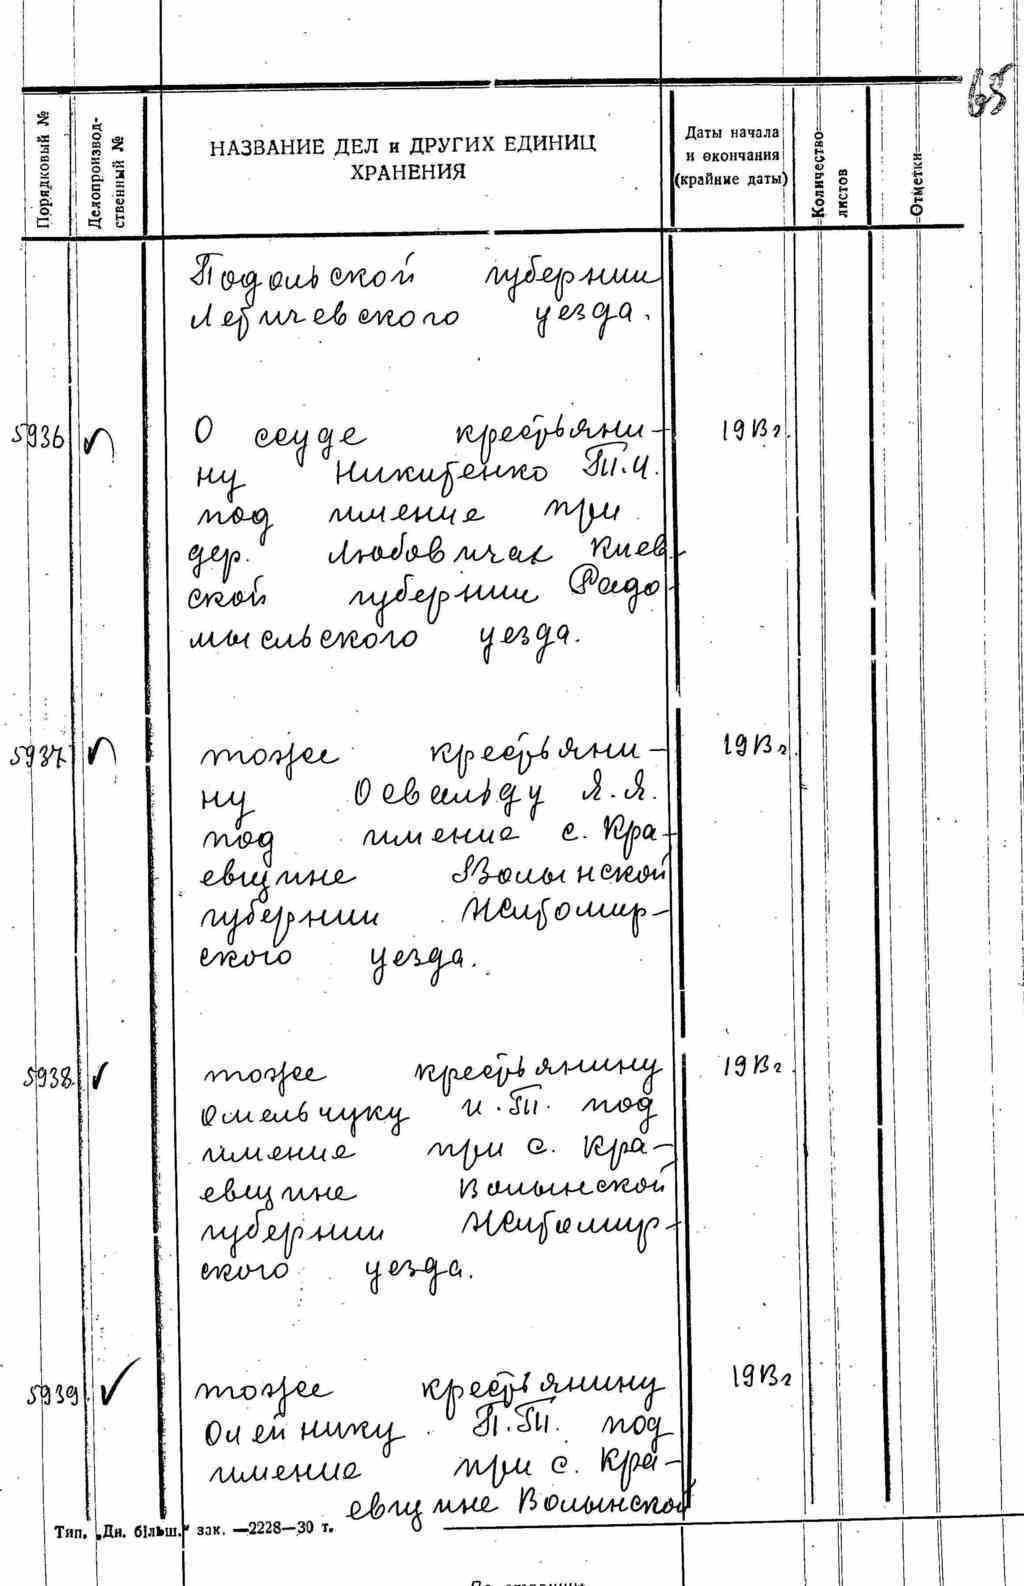 65
Порядковый №
Делопроизвод-
ственный №
НАЗВАНИЕ ДЕЛ и ДРУГИХ ЕДИНИЦ
ХРАНЕНИЯ
Даты начала
и окончания
(крайние даты)
Количество
листов
Отметки
Подольской губернии
Летичевского уезда.
5936 О ссуде крестьяни- 1913 г.
ну Никитенко Т.И.
под имение при
дер. Любовичах Киев-
ской губернии Радо-
мысльского уезда.
5937. тоже крестьяни- 1913 г.
ну Освальду Я.Я.
под имение с. Кра-
евщине Волынской
губернии Житомир-
ского уезда.
5938. тоже крестьянину 1913 г.
Омельчуку И.П. под
имение при с. Кра-
евщине Волынской
губернии Житомир-
ского уезда.
5939. тоже крестьянину 1913 г
Олейнику П.П. под
имение при с. Кра-
евщине Волынской
Тип. „Дн. більш.“ зак. —2228—30 т.